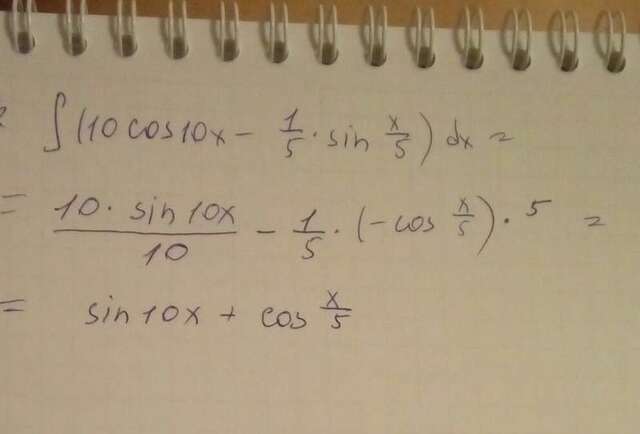 ∫(10cos10x - 1/5 · sin x/5) dx =
= 10 · sin 10x / 10 - 1/5 · (-cos x/5) · 5 =
= sin 10x + cos x/5